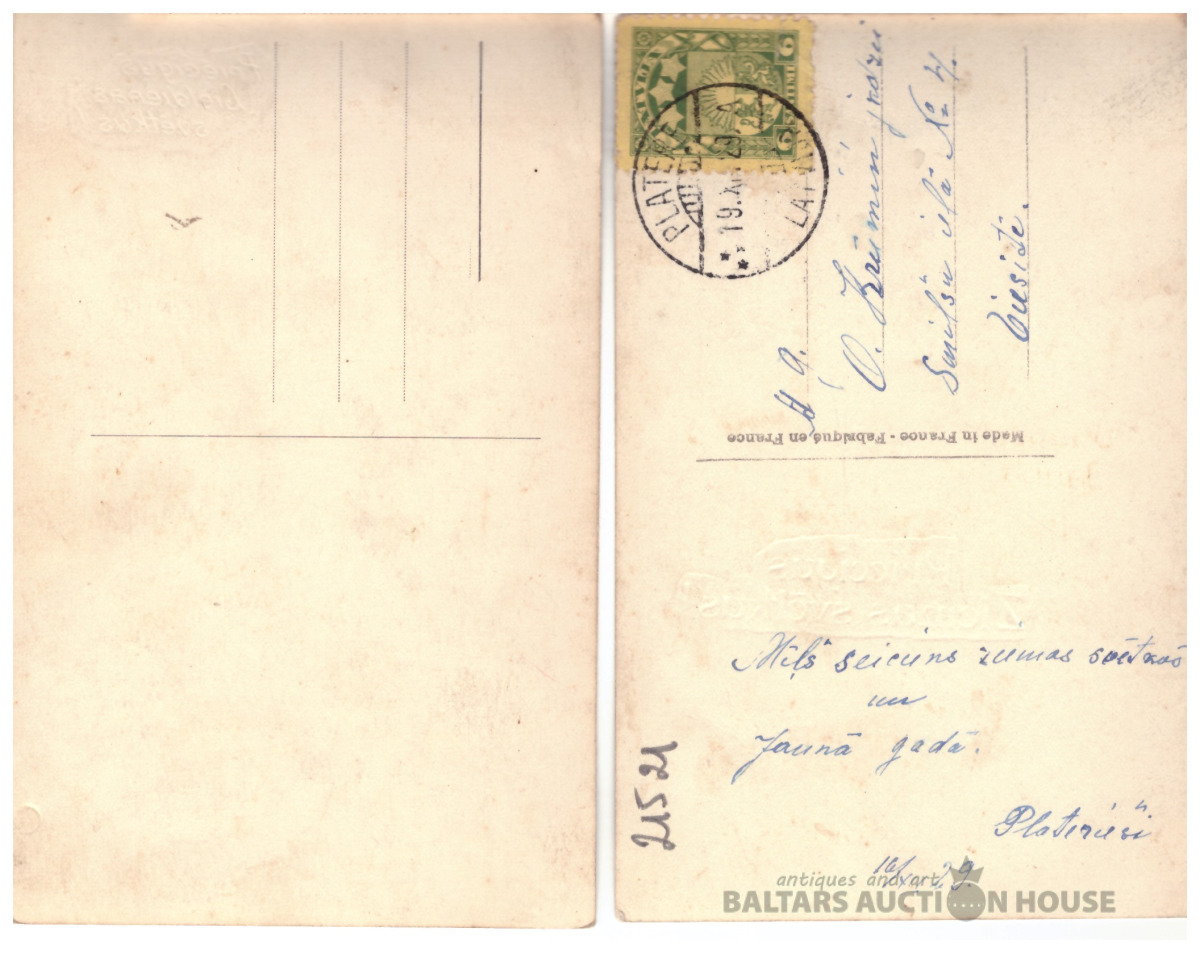 Priecīgus
Lieldienas
svētkus
LATVIJA
6
6
PLATERE
LATVIJA
19.XII 29
A. G.
O. Krūmiņ jkdzei
Smilšu ielā № 4.
Viesītē.
Made in France - Fabriqué en France
Priecīgus
Ziemas svētkus
Mīļš sveiciens ziemas svētkos
un
Jaunā gadā.
Platerieši
21521
antiques and art
BALTARS AUCTION HOUSE